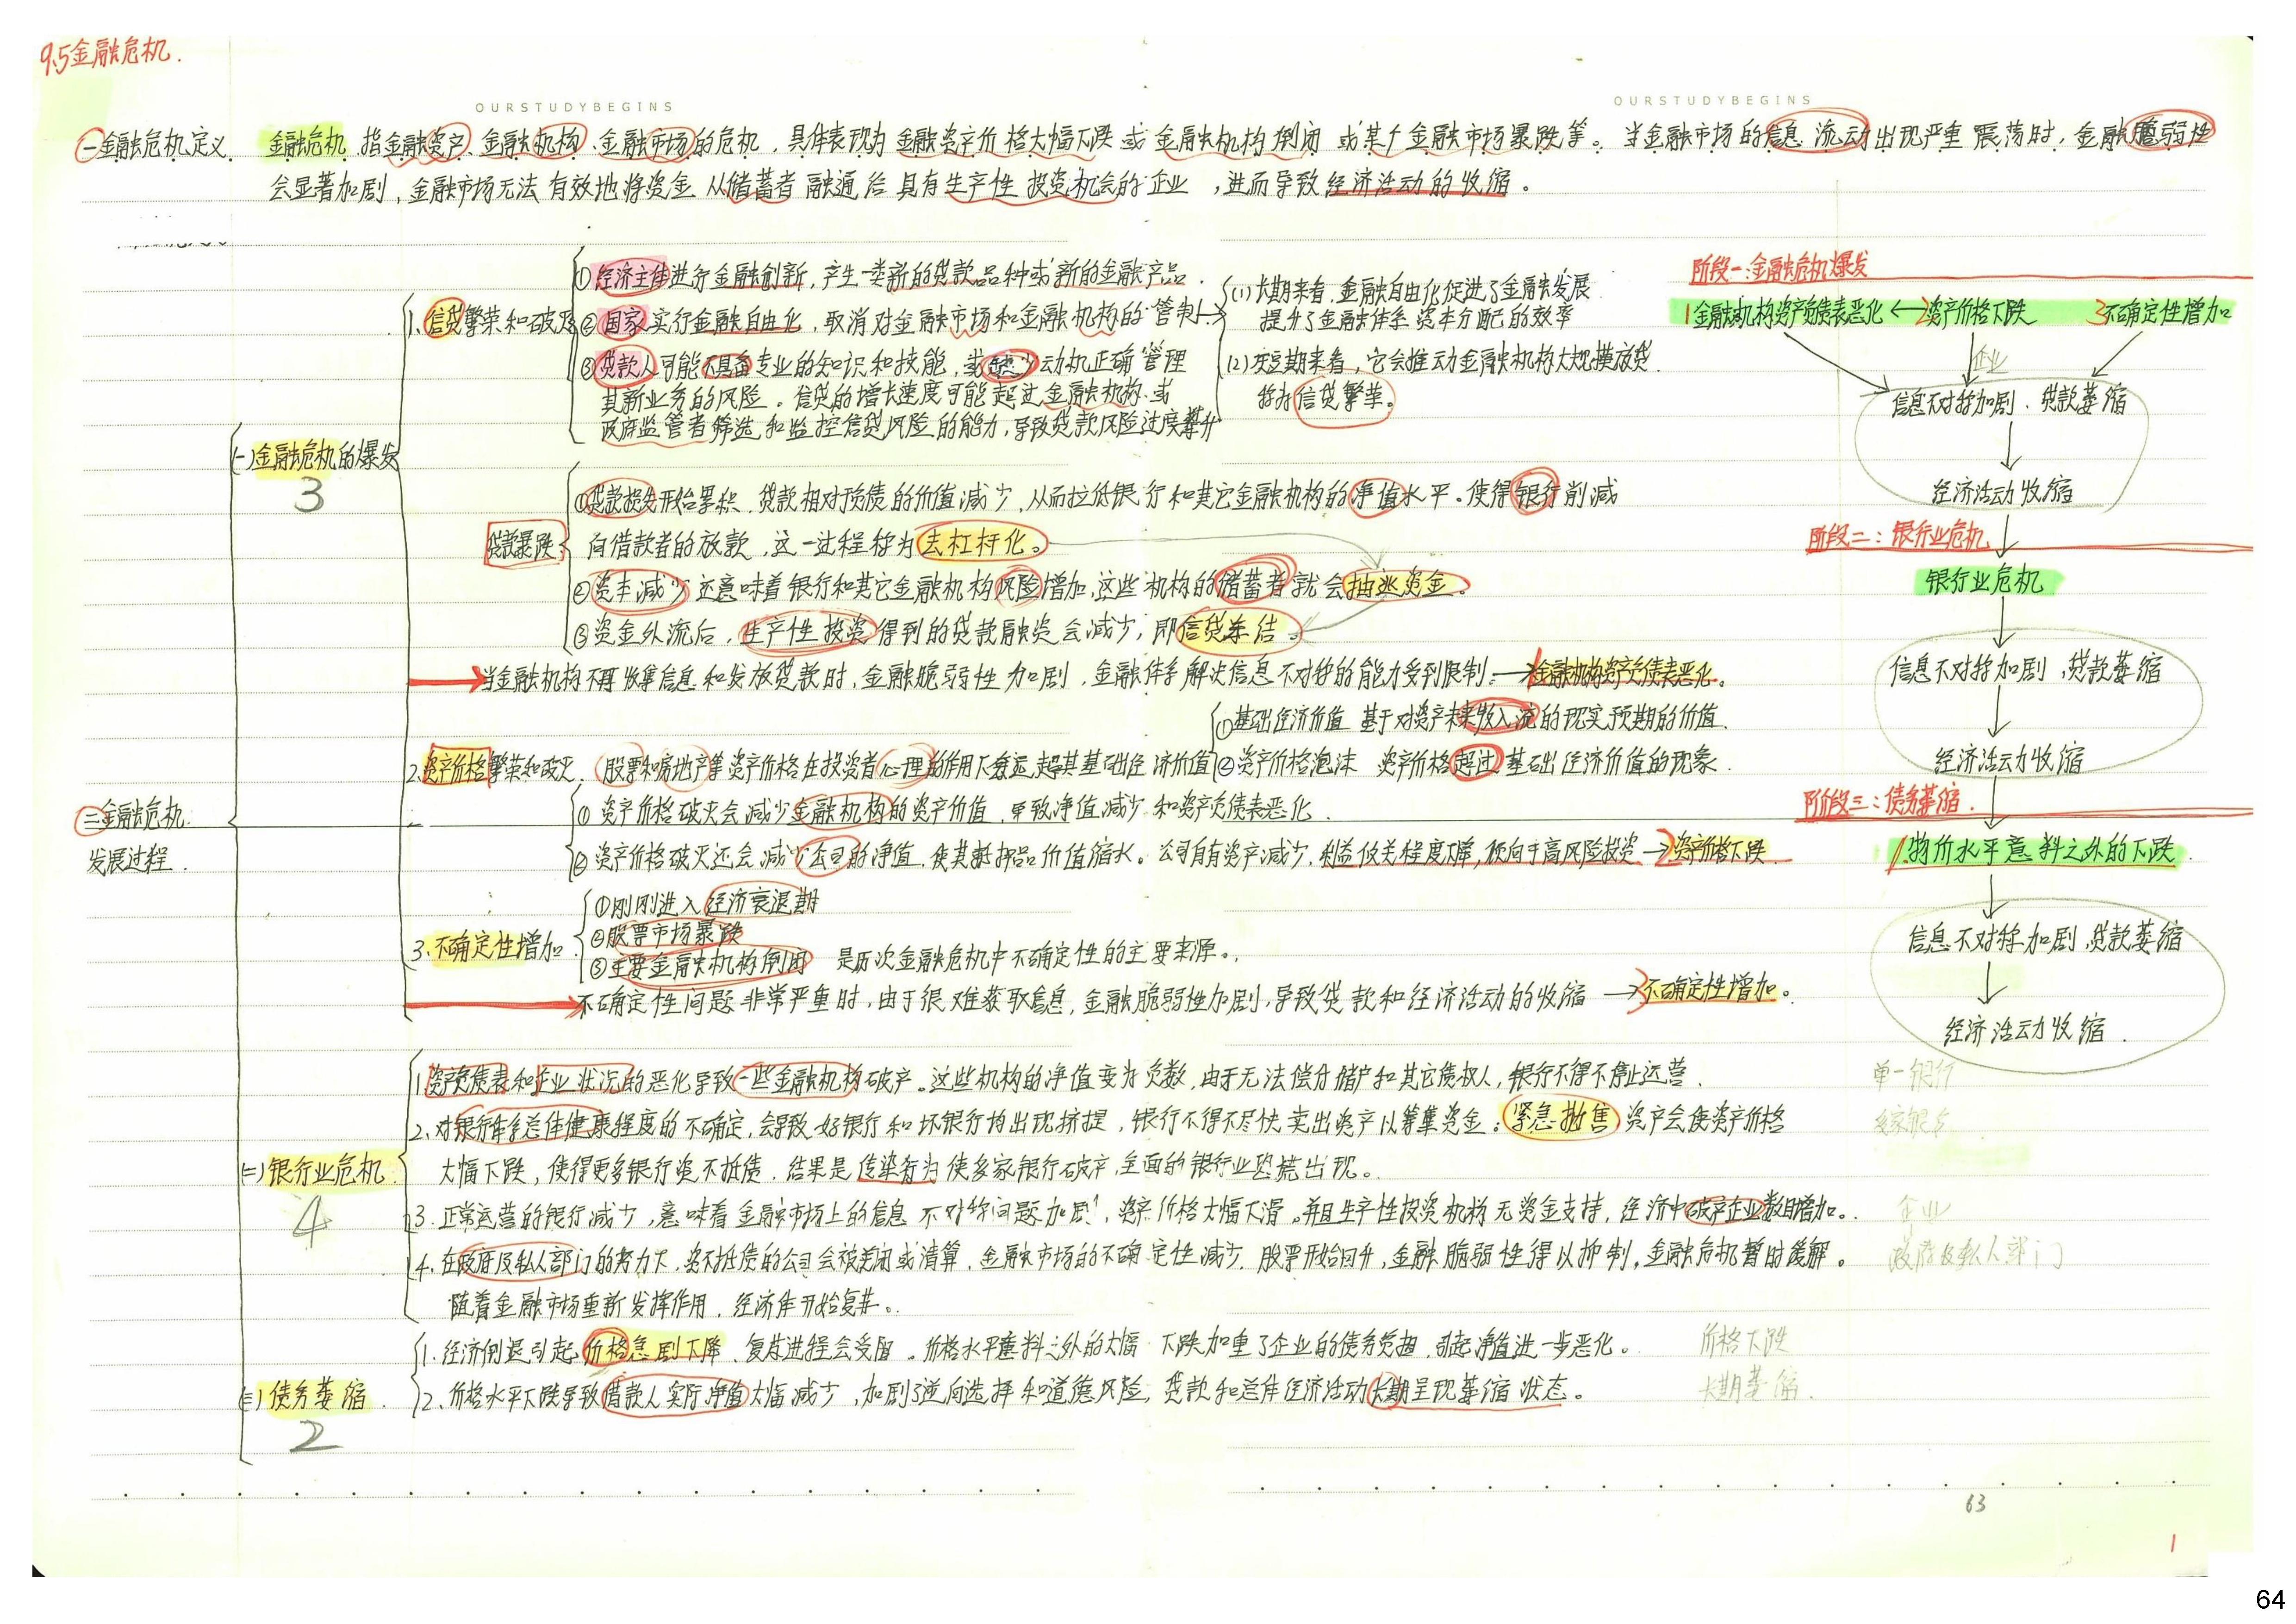 9.5金融危机.
OURSTUDYBEGINS
OURSTUDYBEGINS
一金融危机定义. 金融危机 指金融资产、金融机构、金融市场的危机，具体表现为 金融资产价格大幅下跌 或 金融机构倒闭 或某个金融市场暴跌等。当金融市场的信息 流动出现严重震荡时，金融脆弱性
会显著加剧，金融市场无法有效地将资金 从储蓄者 融通给 具有生产性投资机会的企业，进而导致经济活动的收缩。
二金融危机
发展过程.
(一)金融危机的爆发
3
1.信贷繁荣和破灭
①经济主体进行金融创新，产生一类新的贷款品种或新的金融产品.
②国家实行金融自由化，取消对金融市场和金融机构的管制→
(1)长期来看，金融自由化促进了金融发展
提升了金融体系 资本分配的效率
(2)短期来看，它会推动金融机构大规模放贷.
称为信贷繁荣。
③贷款人可能不具备专业的知识和技能，或缺少动机正确管理
其新业务的风险。信贷的增长速度可能超过金融机构或
政府监管者筛选和监控信贷风险的能力，导致贷款风险过度攀升
贷款暴跌
①贷款损失开始累积，贷款相对负债的价值减少，从而拉低银行和其它金融机构的净值水平。使得银行削减
向借款者的放款，这一过程称为去杠杆化。
②资本减少还意味着银行和其它金融机构风险增加，这些机构的储蓄者就会抽逃资金。
③资金外流后，生产性投资得到的贷款融资会减少，即信贷冻结。
→当金融机构不再收集信息和发放贷款时，金融脆弱性加剧，金融体系解决信息不对称的能力受到限制.→1金融机构资产负债表恶化。
2.资产价格繁荣和破灭. 股票和房地产等资产价格在投资者心理的作用下会远超其基础经济价值
①基础经济价值 基于对资产未来收入流的现实预期的价值.
②资产价格泡沫 资产价格超过基础经济价值的现象.
① 资产价格破灭会减少金融机构的资产价值，导致净值减少和资产负债表恶化.
② 资产价格破灭还会减少公司的净值，使其抵押品价值缩水。公司自有资产减少，利益攸关程度下降，倾向于高风险投资→2资产价格下跌.
3.不确定性增加
①刚刚进入经济衰退期
②股票市场暴跌
③主要金融机构倒闭 是历次金融危机中不确定性的主要来源。
→不确定性问题非常严重时，由于很难获取信息，金融脆弱性加剧，导致贷款和经济活动的收缩→3不确定性增加。
(二)银行业危机
4
1.资产负债表和企业状况的恶化导致一些金融机构破产。这些机构的净值变为负数，由于无法偿付储户和其它债权人，银行不得不停止运营.
单一银行
2.对银行体系总体健康程度的不确定，会导致好银行和坏银行均出现挤提，银行不得不尽快卖出资产以筹集资金；紧急抛售资产会使资产价格
多家银行
大幅下跌，使得更多银行资不抵债，结果是传染行为使多家银行破产，全面的银行业恐慌出现。
3.正常运营的银行减少，意味着金融市场上的信息不对称问题加剧，资产价格大幅下滑。并且生产性投资机构无资金支持，经济中破产企业数目增加。
企业
4.在政府及私人部门的努力下，资不抵债的公司会被关闭或清算，金融市场的不确定性减少，股票开始回升，金融脆弱性得以抑制，金融危机暂时缓解。
政府及私人部门
随着金融市场重新发挥作用，经济体开始复苏。
(三)债务萎缩
2
1.经济倒退引起价格急剧下降，复苏进程会受阻。价格水平意料之外的大幅下跌加重了企业的债务负担，引起净值进一步恶化。
价格下跌
2.价格水平下跌导致借款人实际净值大幅减少，加剧了逆向选择和道德风险，贷款和总体经济活动长期呈现萎缩状态。
长期萎缩.
阶段一:金融危机爆发
1金融机构资产负债表恶化←2资产价格下跌 3不确定性增加
企业
信息不对称加剧、贷款萎缩
经济活动收缩
阶段二：银行业危机
银行业危机
信息不对称加剧，贷款萎缩
经济活动收缩
阶段三：债务萎缩.
1物价水平意料之外的下跌.
信息不对称加剧，贷款萎缩
经济活动收缩.
63
1
64